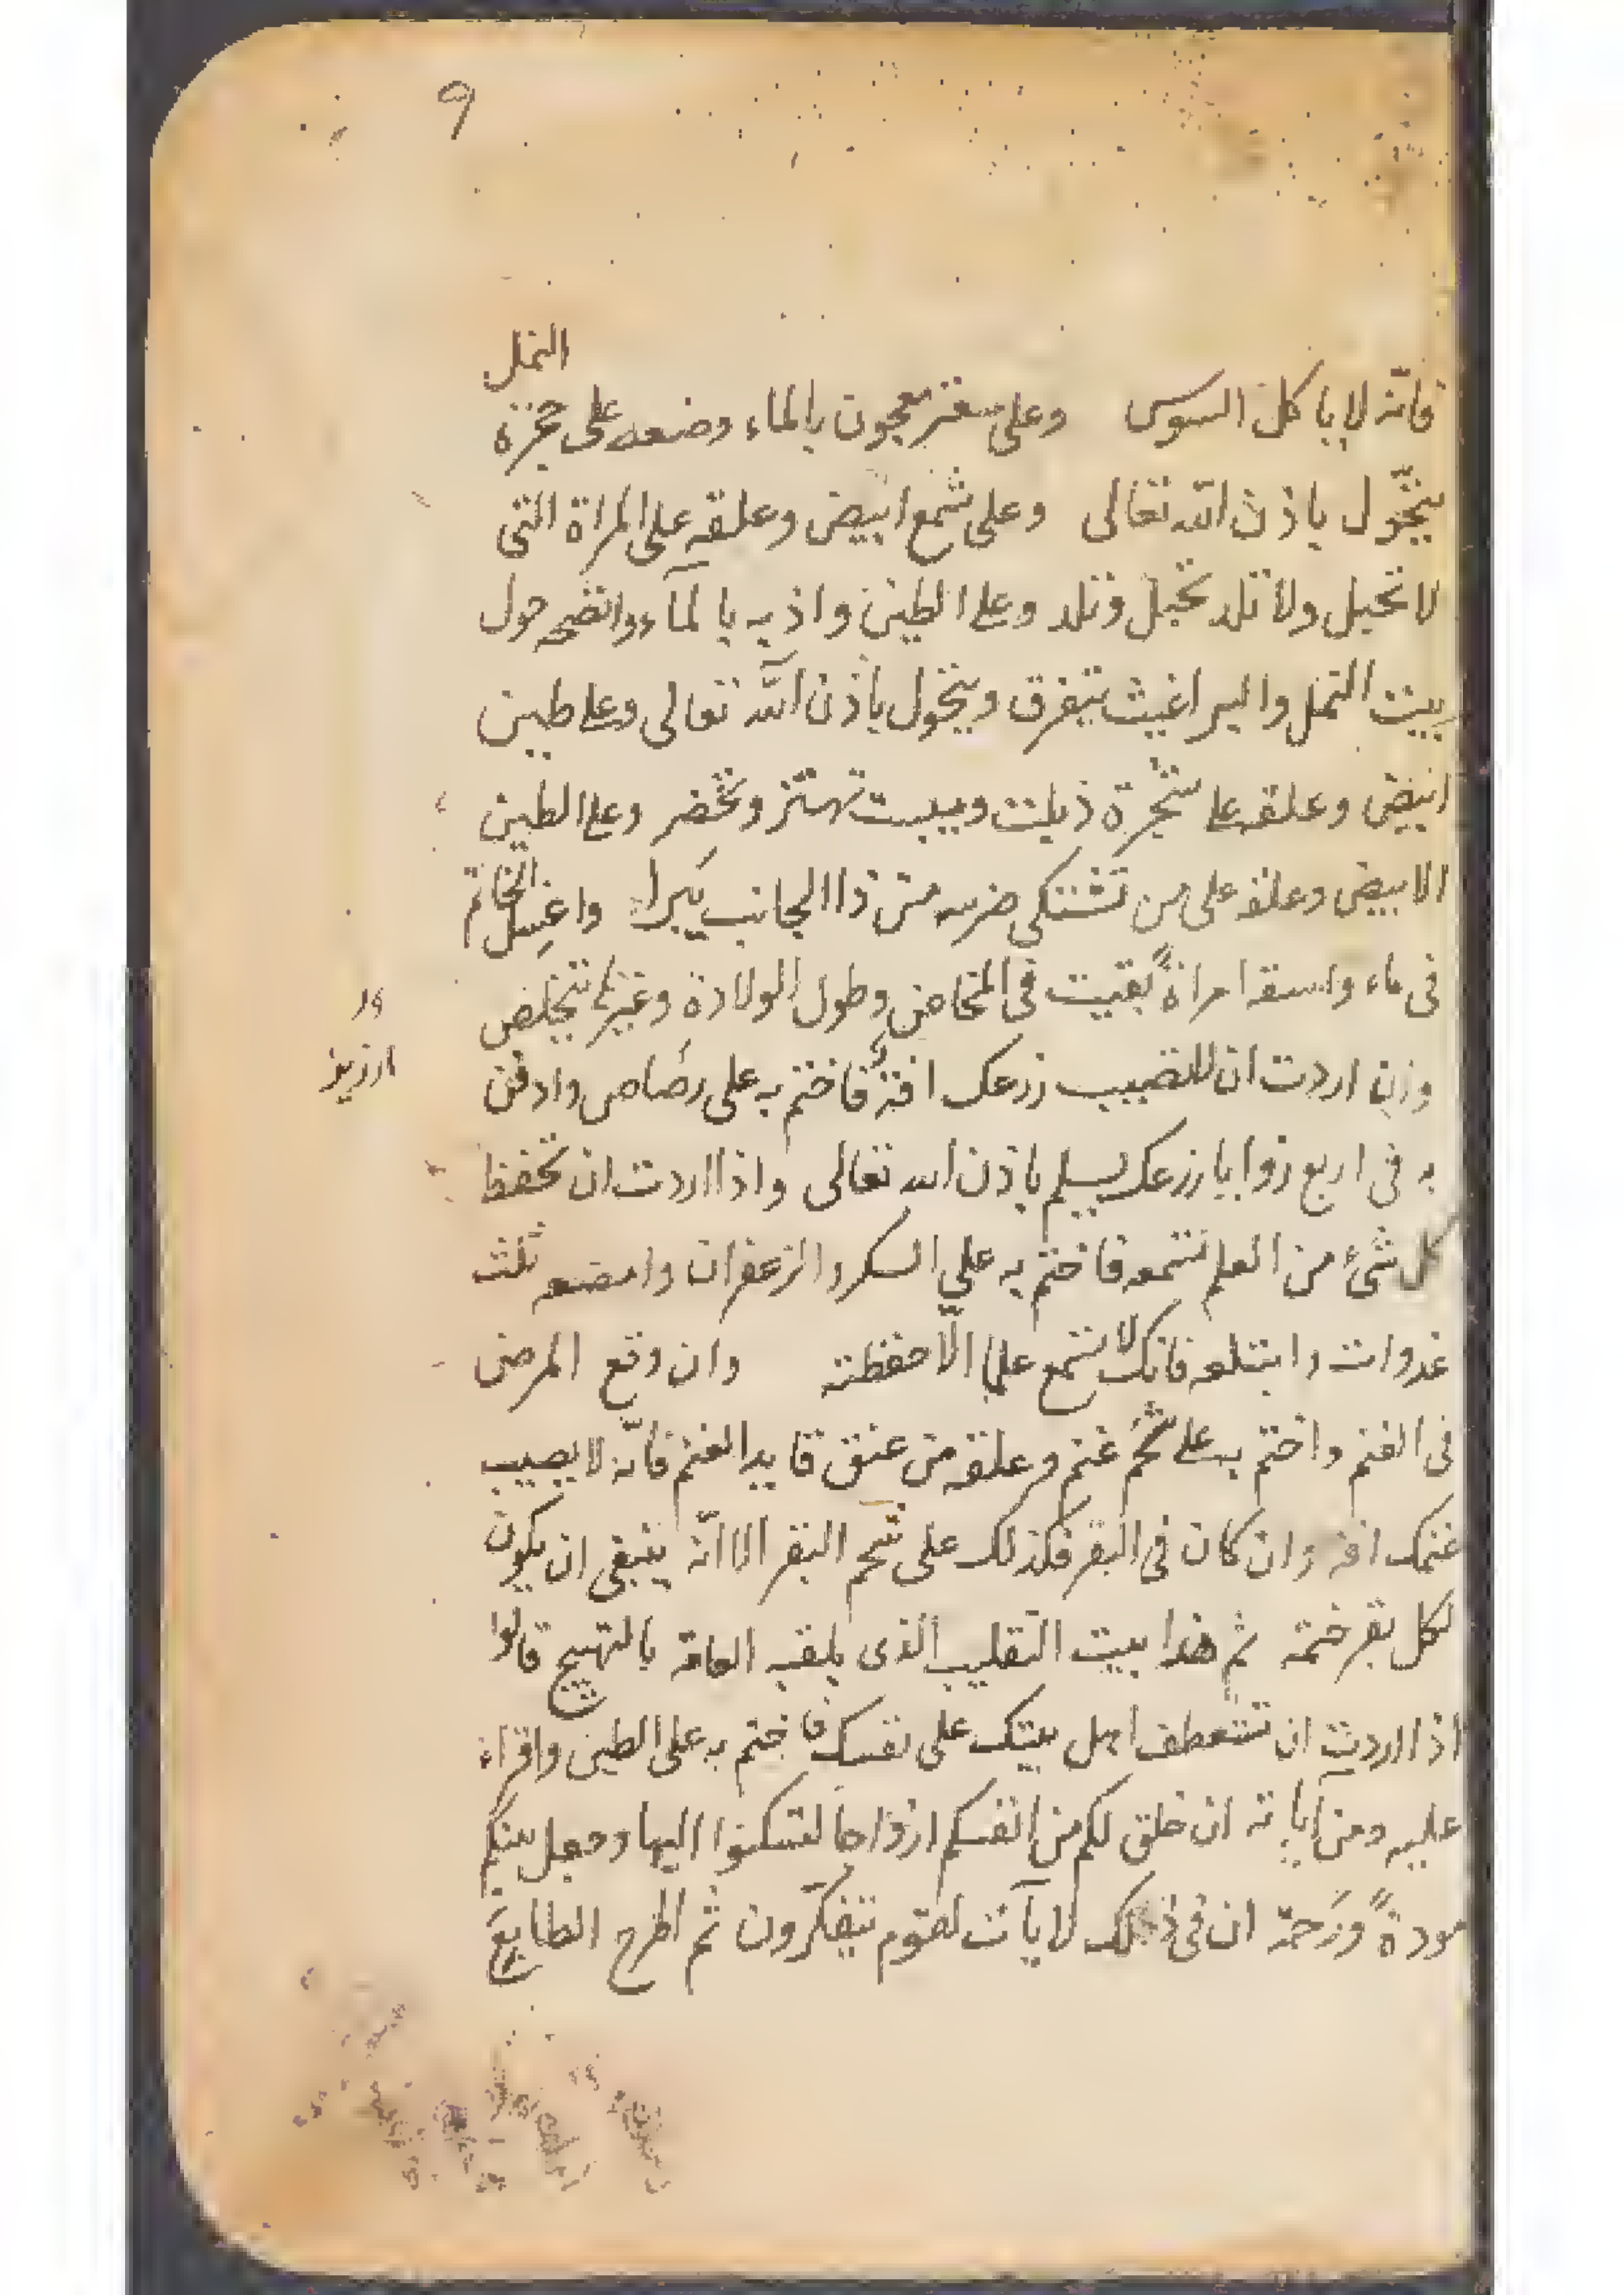 9
النمل
فانّه لا ياكل السوس وعلى سعتر معجون بالماء وضعه على حجزة
يتحّول باذن الله تعالى وعلى شمع ابيض وعلقه على المراة التى
لا تحبل ولا تلد تحبل وتلد وعلى الطين واذبه بالمآء وانضحه حول
بيت النمل والبراغيث يتفرق ويتحول باذن الله تعالى وعلى طين
ابيض وعلقه على شجرة ذبلت ويبست تهتز وتخضر وعلى الطين
الابيض وعلقه على من تشتكى ضرسه من ذا الجانب يبرا واغسل الخاتم
فى ماء واسقه امراةً بقيت فى المخاض وطول الولادة وغيرها تتخلص
وان اردت ان لا تصيب زرعك افة فاختم به على رصاص وادفن
به فى اربع زوايا زرعك يسلم باذن الله تعالى واذا اردت ان تحفظ
كل شىء من العلم تسمعه فاختم به على السكر والزعفران وامضغه ثلث
غدوات وابتلعه فانك لا تسمع علما الّا حفظته وان وقع المرض
فى الغنم واختم به على شحم غنم وعلقه من عنق قايد الغنم فانّه لا يصيب
غنمك افة وان كان فى البقر فكذلك على شحم البقر الا انّه ينبغى ان يكون
لكل بقر ختمة ثم هذا بيت التقليب الذى يلقبه العامة بالتهييج قالوا
اذا اردت ان تستعطف اهل بيتك على نفسك فاختم به على الطين واقراء
عليه ومن آياته ان خلق لكم من انفسكم ازواجا لتسكنوا اليها وجعل بينكم
مودةً ورَحمة ان فى ذلك لايآت لقوم يتفكّرون ثم اطرح الطابع